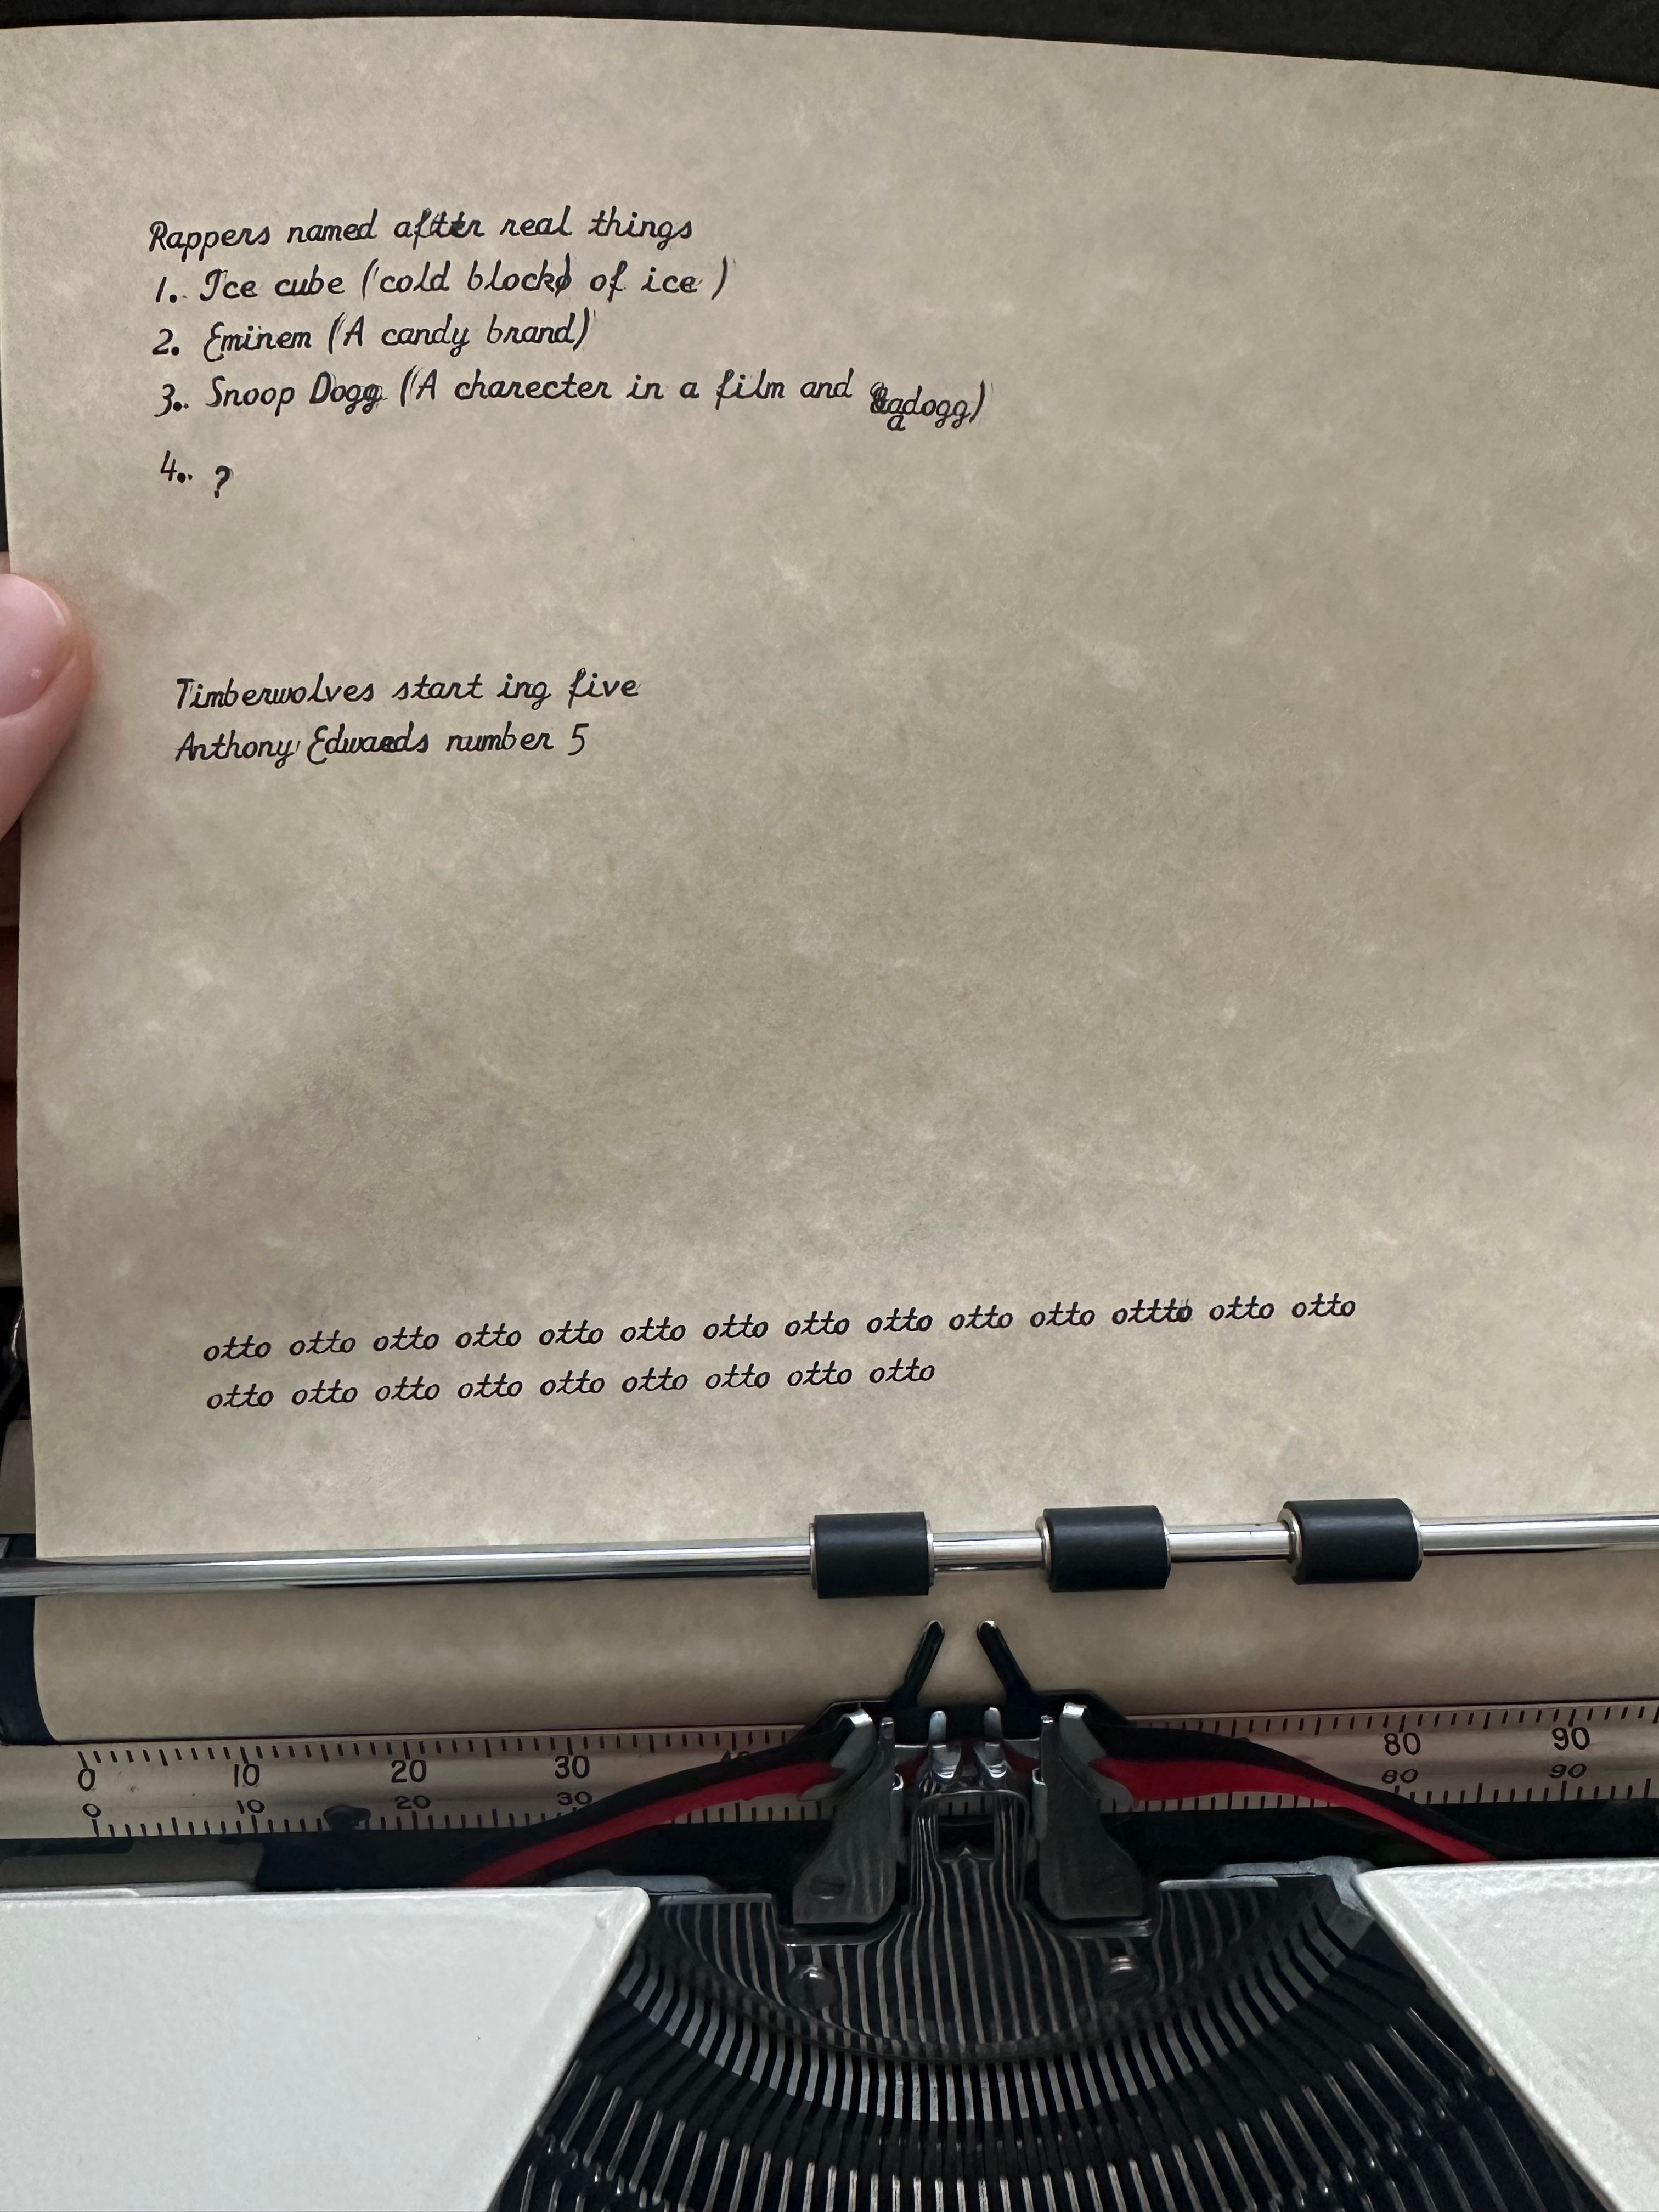 Rappers named after real things
1. Ice cube (cold block of ice )
2. Eminem (A candy brand)
3. Snoop Dogg (A charecter in a film and adogg)
4. ?
Timberwolves start ing five
Anthony Edwaeds number 5
otto otto otto otto otto otto otto otto otto otto otto ottto otto otto
otto otto otto otto otto otto otto otto otto
0 10 20 30 80 90
0 10 20 30 80 90